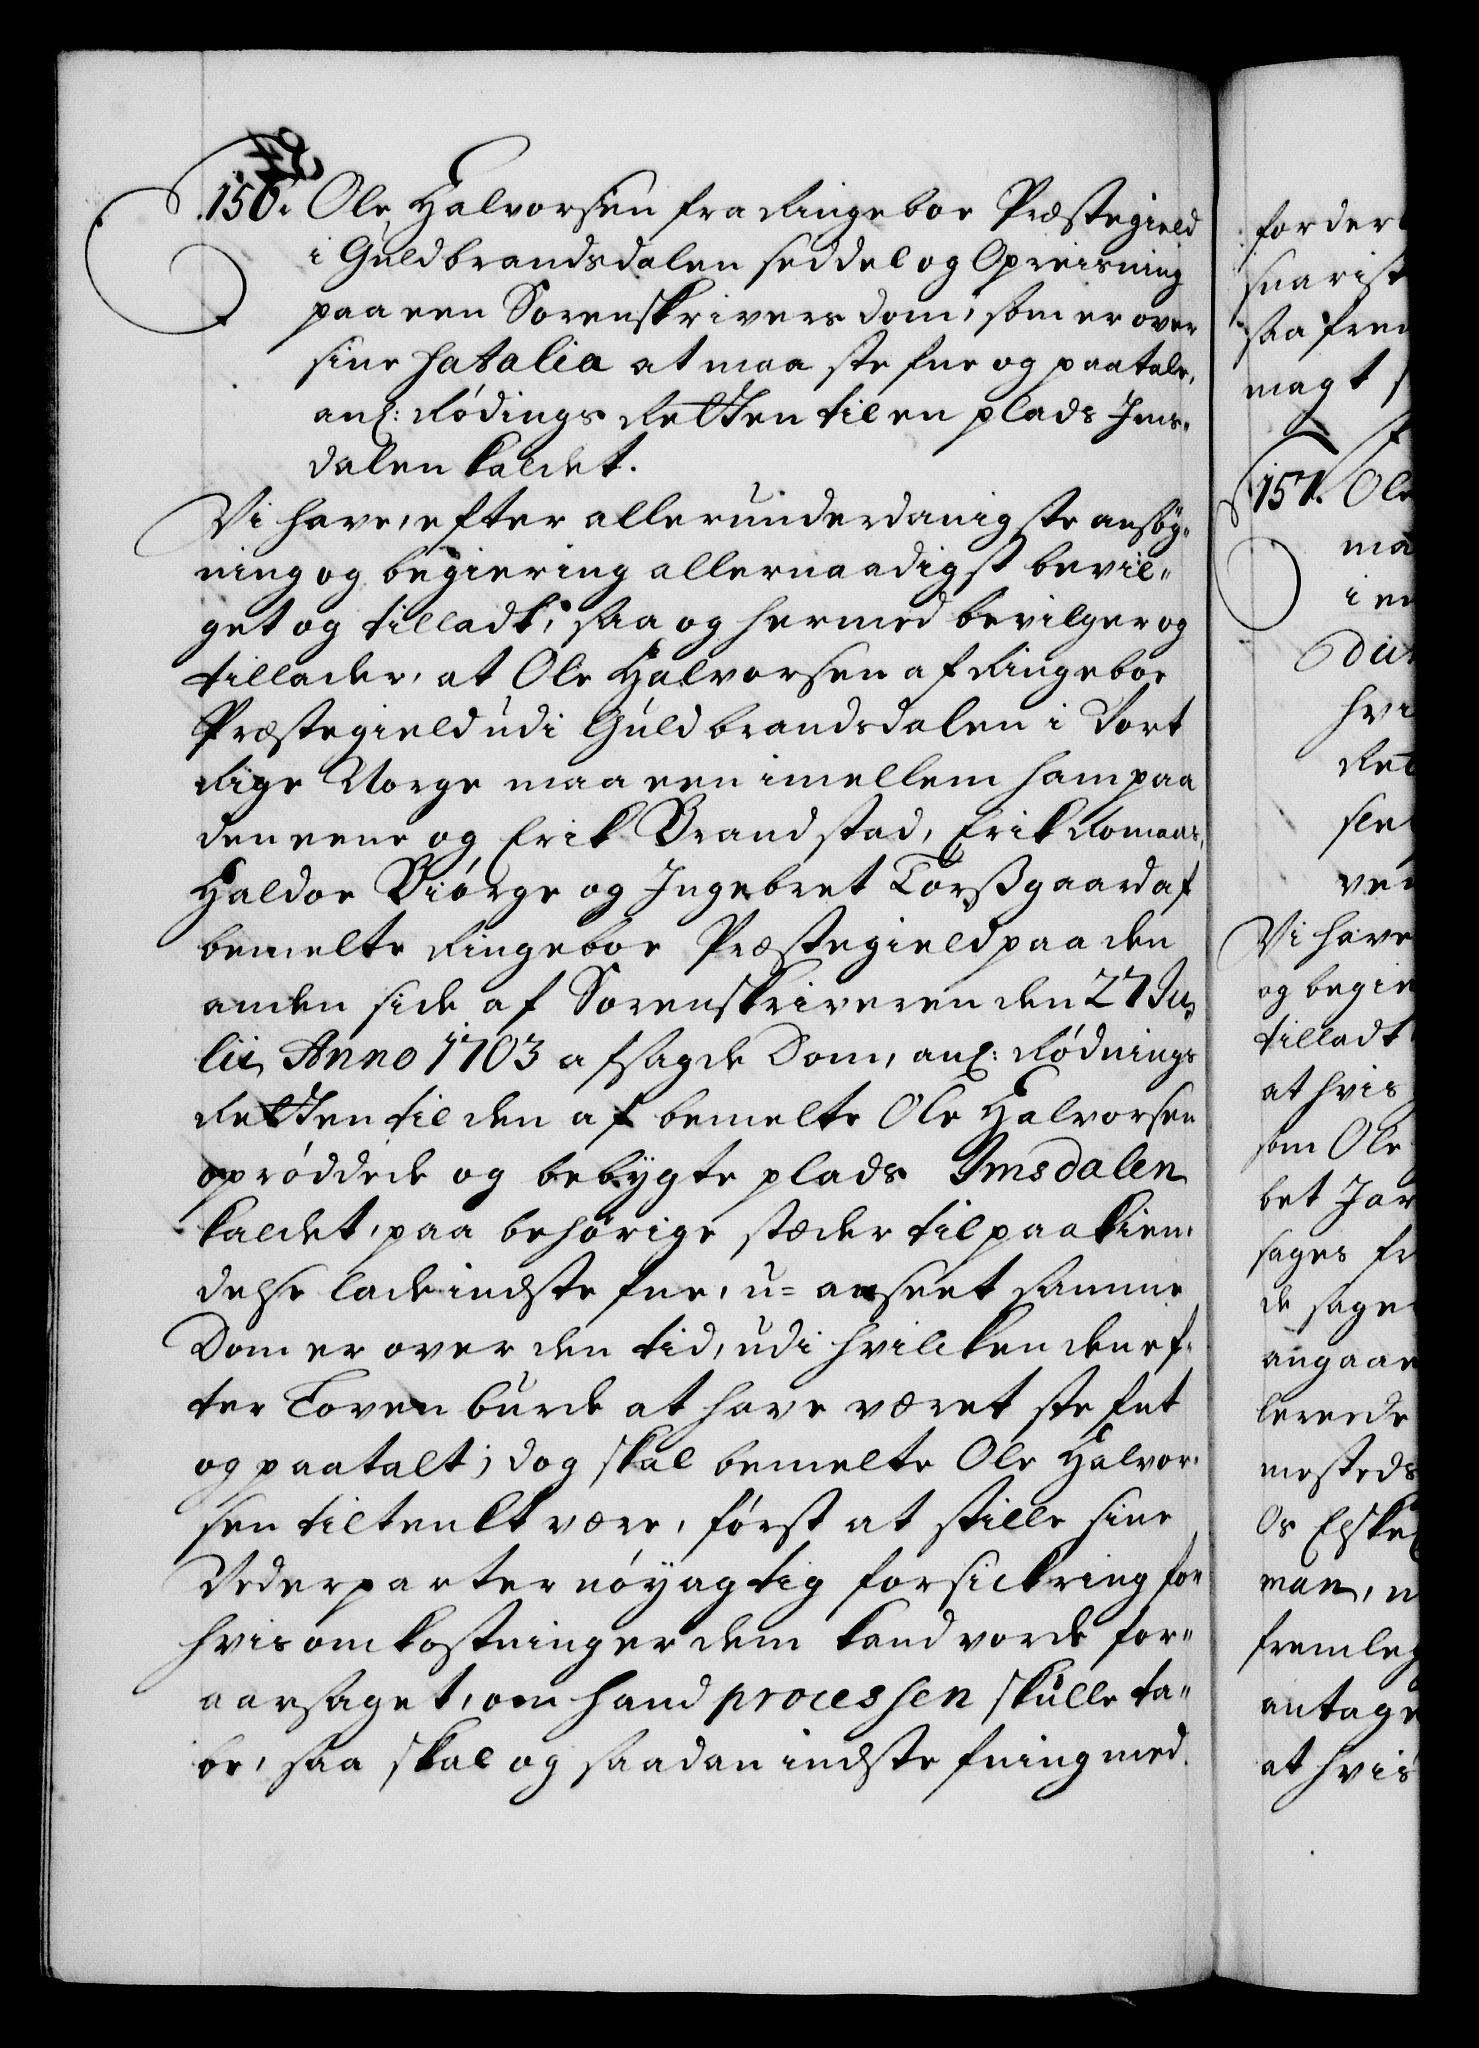 156. Ole Halvorsen fra Ringeboe Præstegield
i Guldbrandsdalen seddel og Opreisning
paa een Sorenskrivers dom, som er over
sine fatalia at maa stefne og paatale,
anl: Rödings Retten til en plads Ims-
dalen kaldet.
Vi have, efter allerunderdanigste ansög-
ning og begiering allernaadigst bevil-
get og tilladt, saa og hermed bevilger og
tillader, at Ole Halvorsen af Ringeboe
Præstegield udi Guldbrandsdalen i Vort
Rige Norge maa een imellem ham paa
den eene og Erik Brandstad, Erik Romaas,
Haldor Biörge og Ingebret Torsgaard af
bemelte Ringeboe Præstegield paa den
anden side af Sorenskriveren den 27 Ju-
lii Anno 1703 afsagde Dom, anl: Rödnings
Retten til den af bemelte Ole Halvorsen
opröddede og bebygte plads Imsdalen
kaldet, paa behörige stæder til paakien-
delse lade indstefne, u-anseet samme
Dom er over den tid, udi hvilcken den ef-
ter Loven burde at have været stefnt
og paatalt; dog skal bemelte Ole Halvor-
sen tiltenkt være, först at stille sine
Vederparter nöyagtig forsickring for
hvis omkostninger dem kand vorde for-
aarsaget, om hand processen skulle ta-
be, saa skal og saadan indstefning med
forder
snarist
saa frem
magt
157. Ole
ma
i en
Vi have
og begie
tilladt
at hvis
som Ole
bet Jar
sages
de sage
angaae
mesteds
Os Elske
man,
fremleg
antage
at hvis